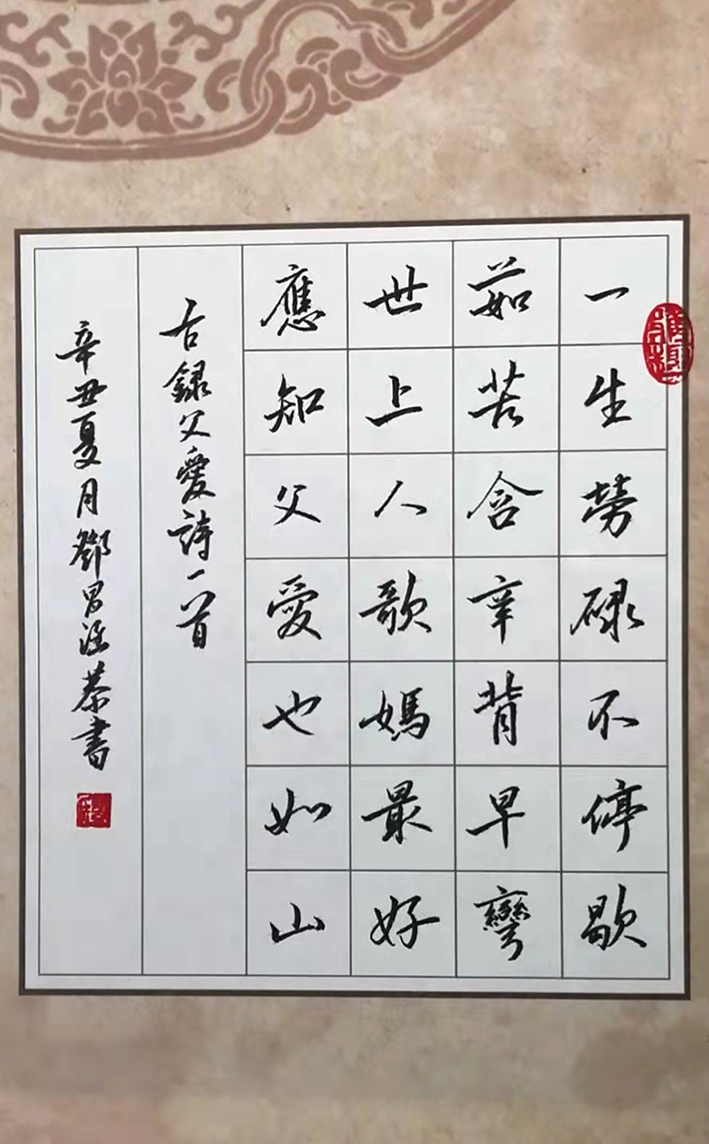 一生勞碌不停歇
茹苦含辛背早彎
世上人歌媽最好
應知父愛也如山
古録父愛詩一首
辛丑夏月鄧昌涇恭書